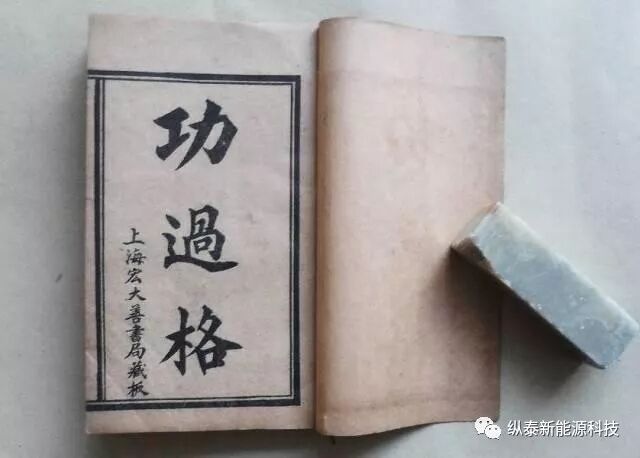 功過格
上海宏大善書局藏板
纵泰新能源科技